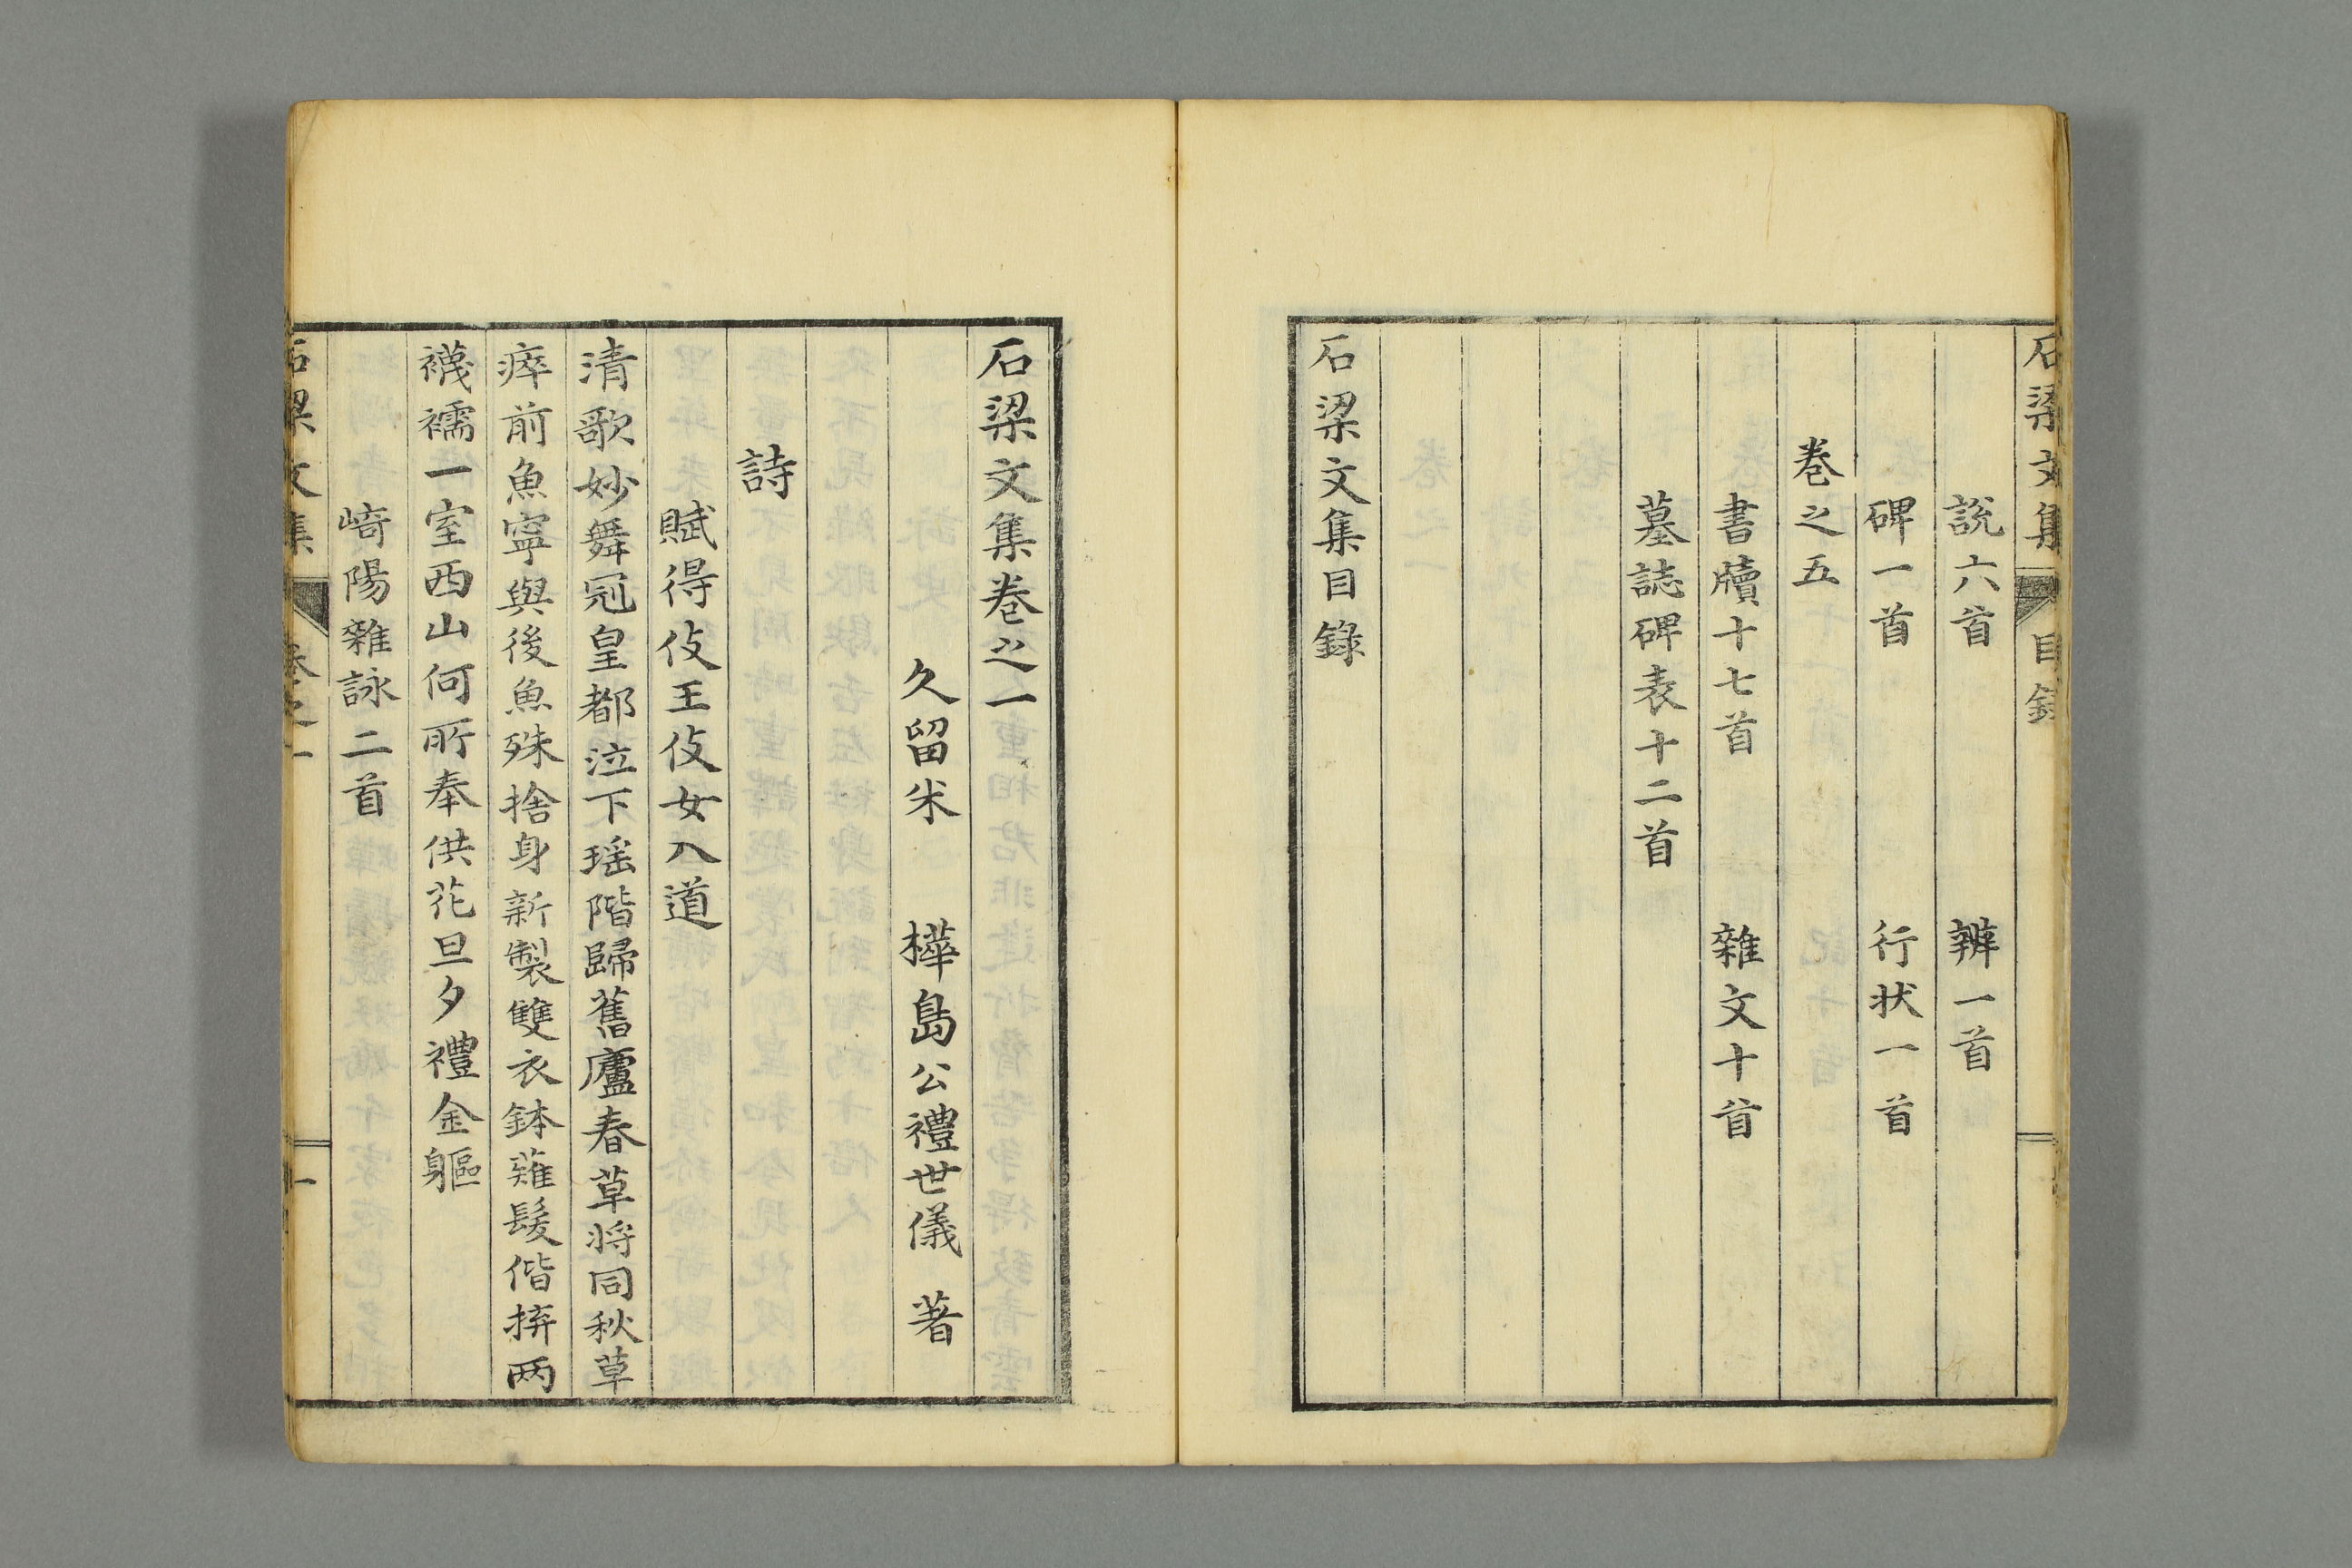 石梁文集 目錄
說六首 辨一首
碑一首 行状一首
巻之五
書牘十七首 雜文十首
墓誌碑表十二首
石梁文集目錄
石梁文集巻之一
久留米 樺島公禮世儀 著
詩
賦得伎王伎女入道
清歌妙舞冠皇都泣下瑶階歸舊廬春草将同秋草
瘁前魚寧與後魚殊捨身新製雙衣鉢薙髪偕擠两
襪襦一室西山何所奉供花旦夕禮金軀
﨑陽雜詠二首
石梁文集 巻之一 一